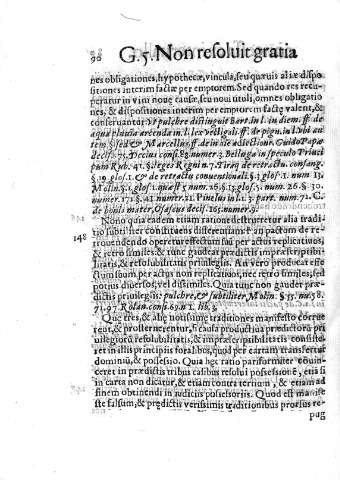 90 G. 5. Non resoluit gratia
nes obligationes, hypothecæ, vincula, seu quæuis aliæ dispo
sitiones interim factæ per emptorem. Sed quando res recu-
peratur in vim nouę causę, seu noui tituli, omnes obligatio
nes, & dispositiones interim per emptorem factę valent, &
conseruantur: vt pulchre distinguit Bart. in l. in diem. ff. de
aqua pluuia arcenda in l. lex vectigali ff. de pign. in l. vbi au
tem §. sed & Marcellus ff. de in diē adiectione. Guido Papæ
decis. Decius consi. numer. 3. Belluga in speculo Princi
pum Rub. 41. §. leges Regni n. 7. Tiraq. de retractu. consang.
§. 29. glos. 1. & de retractu conuentionali §. 1. glos. num. 13
Molin. §. 1. glos. 1. quæst 5. num. 26. §. 13. glos. 5. num. 26. §. 30.
numer. 171. §. 41. numer. 21. Pinelus in l. 3. part. num. 71. C.
de bonis mater, Osascus decis. 105. numer. 9.
Nono quia eadem etiam ratione destrueretur alia tradi-
148 tio subtiliter constituens differentiam: An pactum de re-
trouendendo operetur effectum sui per actus replicatiuos,
& retro similes: & tunc gaudeat prædictis imprescriptibi-
litatis, & resolubilitatis priuilegiis. An verò producat effe
ctum suum per actus non replicatiuos, nec retro similes, sed
potius diuersos, vel dissimiles. Quia tunc non gaudet præ-
dictis priuilegiis: pulchre, & subtiliter Molin. §. 13. nu. 58.
71. 97. Rolan. con. 69. n. 1. lib. 3.
Que tres, & alię notissimę traditiones manifesto corrue
rent, & prosternerentur, si causa productiua prædictorū pri
uilegiorū resolubilitatis, & imprescriptibilitatis consiste
ret in illis principiis foralibus, quòd per cartam transfertur
dominiū, & possessio. Quia hęc ratio pariformiter conuin-
ceret in prædictis tribus casibus resolui possessionē, etiam si
in carta non dicatur, & etiam contra tertium, & etiam ad
finem obtinendi in iudiciis possessoriis. Quod est manife
ste falsum, & prędictis verissimis traditionibus prorsus re-
pug